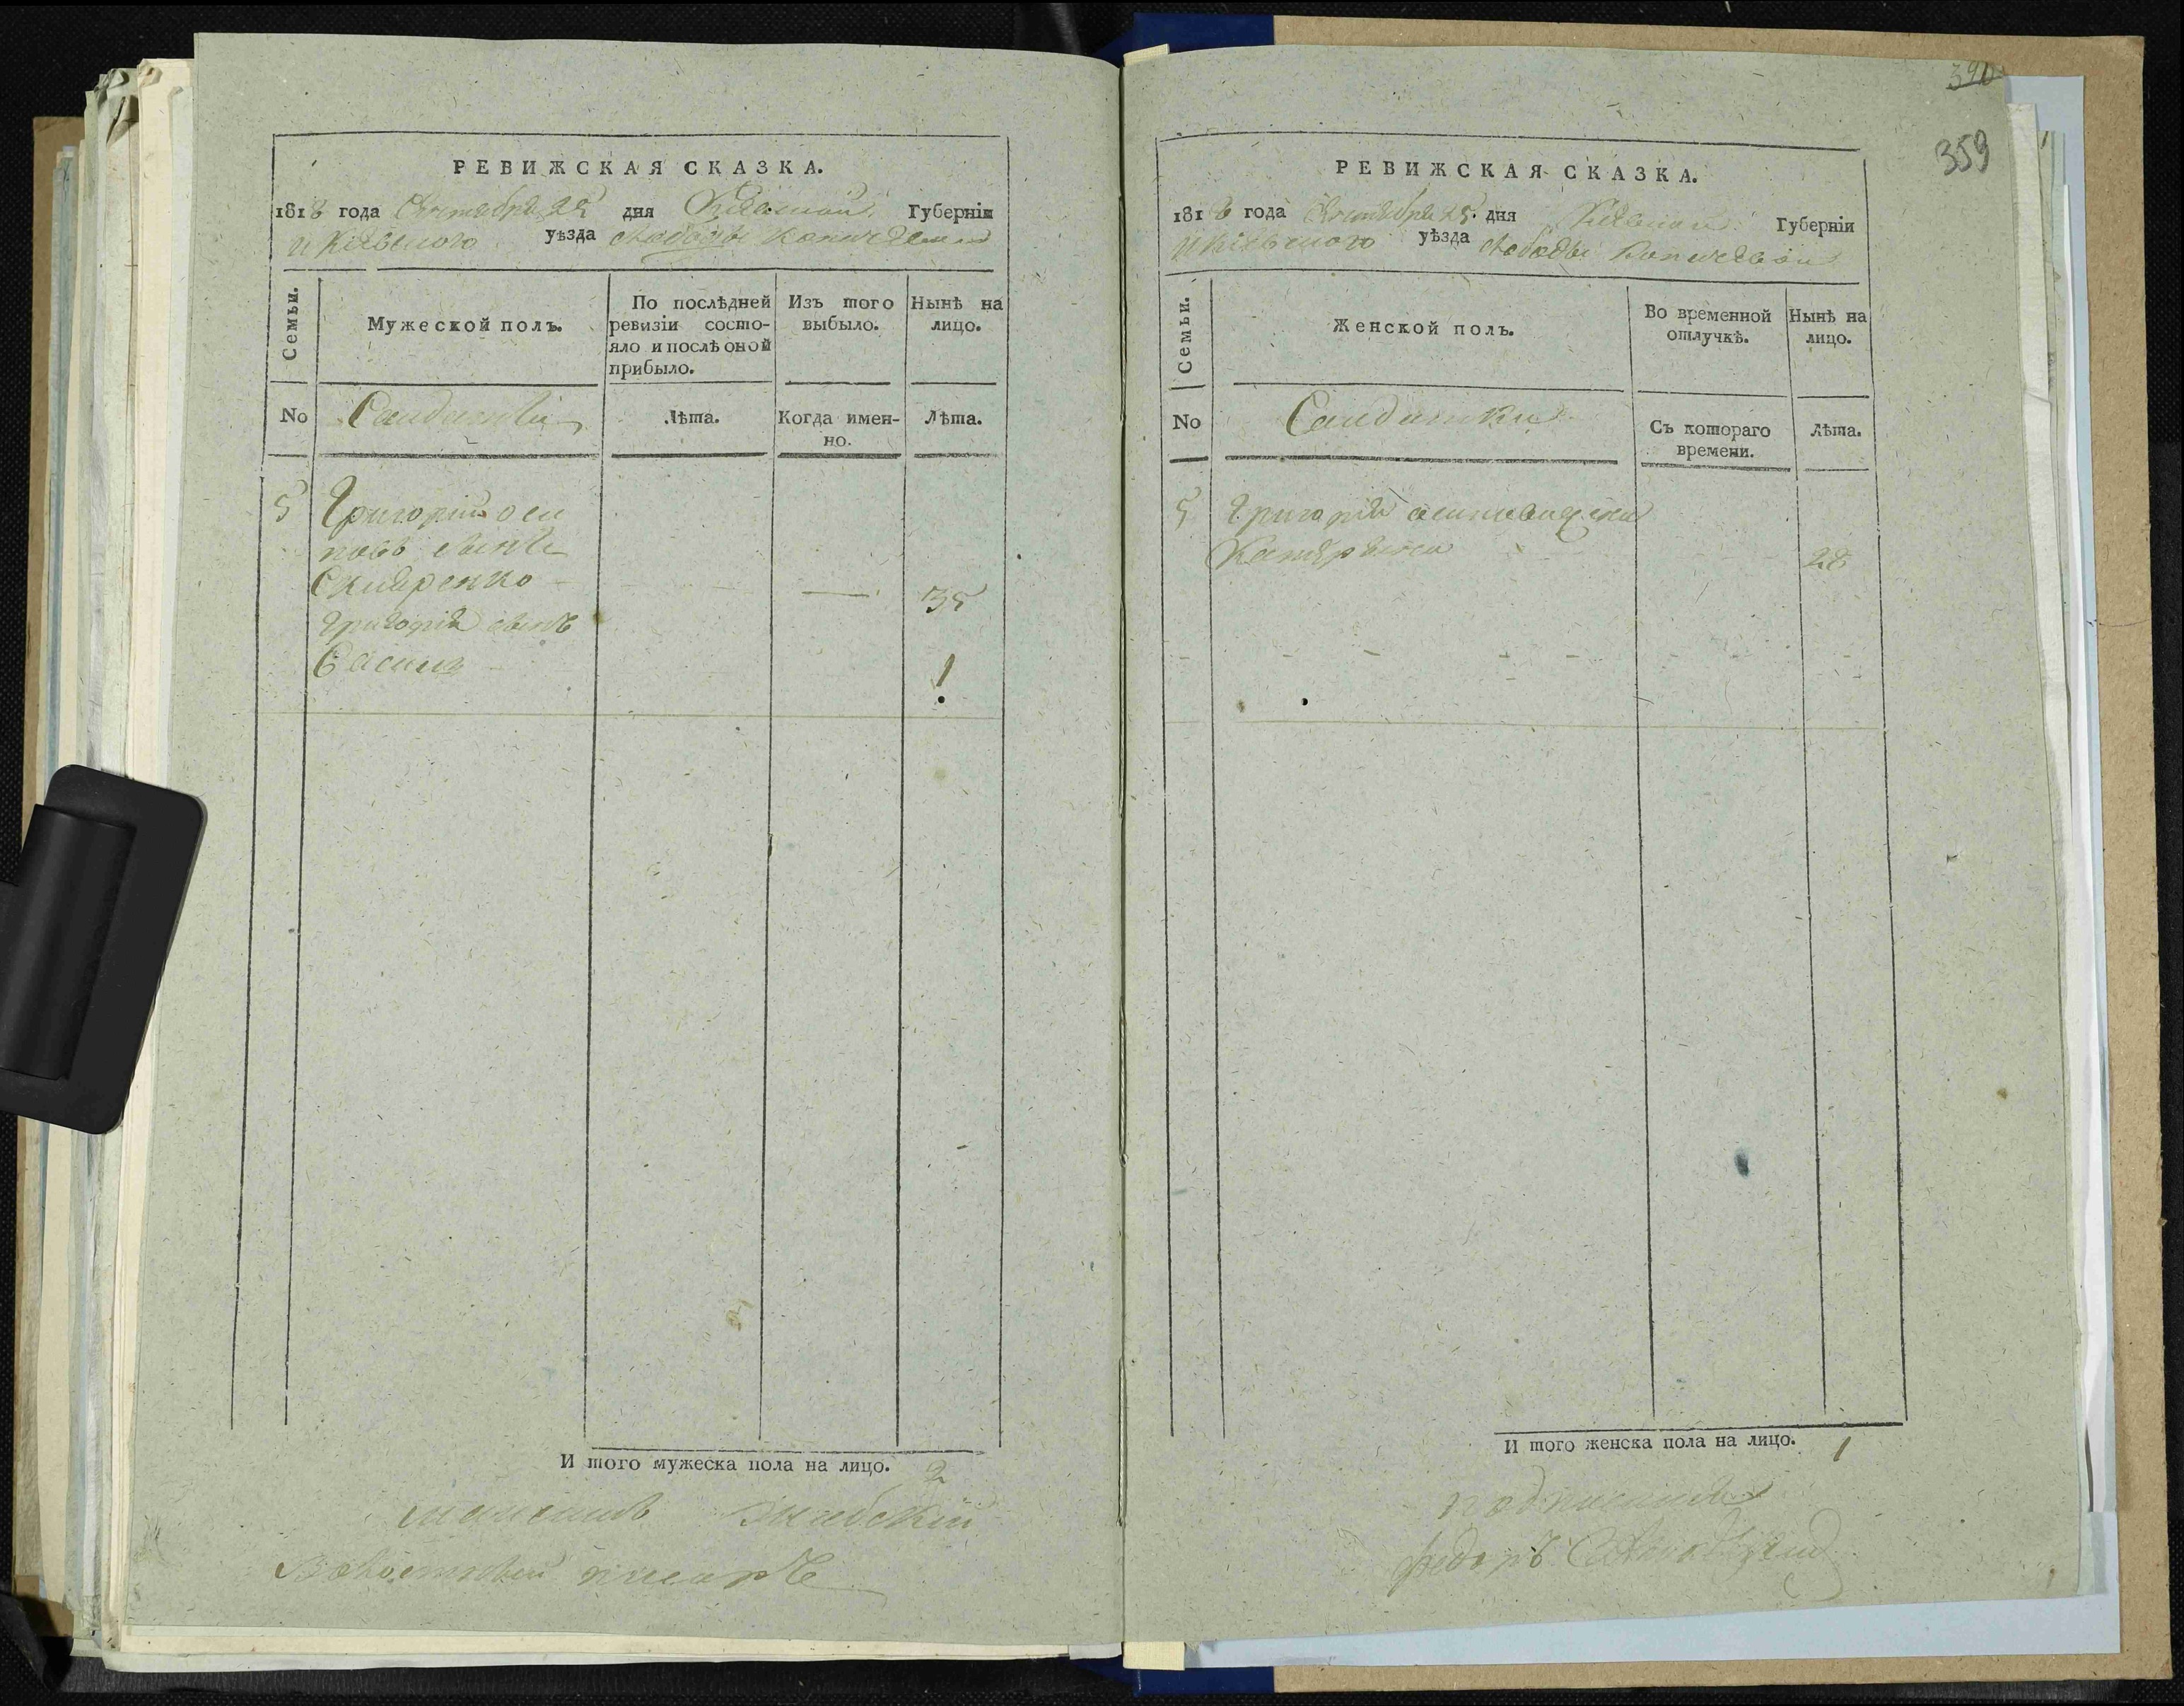 РЕВИЖСКАЯ СКАЗКА.
1818 года Октября 25 дня Киевской Губернїи
и Кіевского уѣзда слободы
Семьи.
Мужеской полъ.
По послѣдней ревизїи состо-
яло и послѣ оной
прибыло.
Изъ того
выбыло.
Нынѣ на
лицо.
No
Лѣта.
Когда имен-
но.
Лѣта.
5 Григорій оси
повъ сынъ
Скляренко 35
Григорія сынъ
Василь 1
И того мужеска пола на лицо. 2
писаръ
390
359
РЕВИЖСКАЯ СКАЗКА.
1818 года Октября 25 дня Киевской Губернїи
и Кіевского уѣзда слободы
Семьи.
Женской полъ.
Во временной
отлучкѣ.
Нынѣ на
лицо.
No
Солдатки
Съ котораго
времени.
Лѣта.
5 Григорія жена
Катерина 28
И того женска пола на лицо. 1
Федоръ